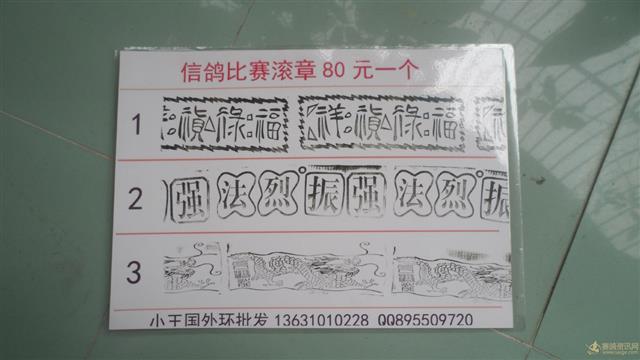 信鸽比赛滚章80元一个
1 禎祿福 祥禎祿福
2 强法烈振强法烈振
3
小王国外环批发 13631010228 QQ895509720
赛鸽资讯网